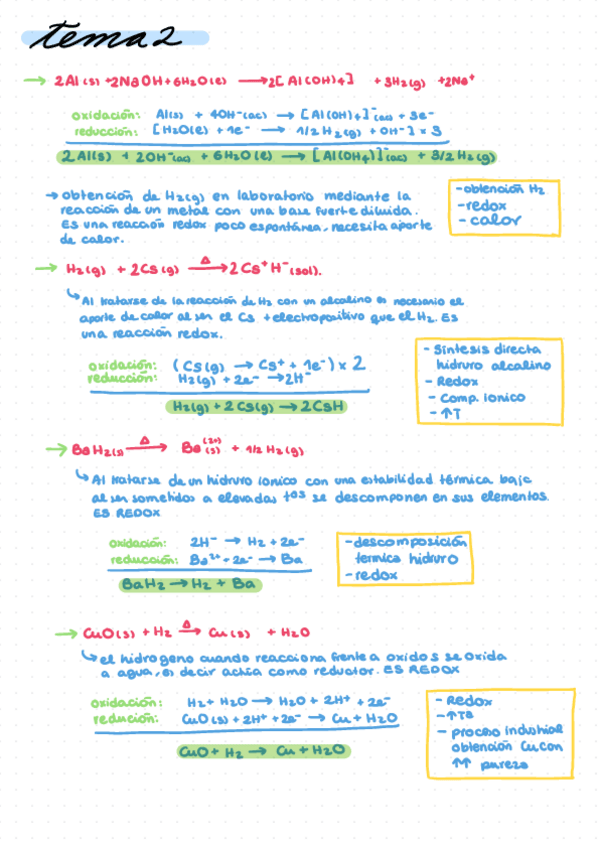 tema 2
→ 2Al(s) + 2NaOH + 6H2O(l) → 2[Al(OH)4]⁻ + 3H2(g) + 2Na⁺
oxidación: Al(s) + 4OH⁻(ac) → [Al(OH)4]⁻(ac) + 3e⁻
reducción: [H2O(l) + 1e⁻ → 1/2 H2(g) + OH⁻] x 3
2Al(s) + 2OH⁻(ac) + 6H2O(l) → [Al(OH4)]⁻(ac) + 3/2 H2(g)
→ obtención de H2(g) en laboratorio mediante la
reacción de un metal con una base fuerte diluida.
Es una reacción redox poco espontánea, necesita aporte
de calor.
- obtención H2
- redox
- calor
→ H2(g) + 2Cs(g) —Δ→ 2Cs⁺H⁻(sol).
↳ Al tratarse de la reacción de H2 con un alcalino es necesario el
aporte de calor al ser el Cs + electropositivo que el H2. Es
una reacción redox.
oxidación: (Cs(g) → Cs⁺ + 1e⁻) x 2
reducción: H2(g) + 2e⁻ → 2H⁻
H2(g) + 2Cs(g) → 2CsH
- Síntesis directa
hidruro alcalino
- Redox
- Comp. Ionico
- ↑T
→ BaH2(s) —Δ→ Ba(s)(2+) + 1/2 H2(g)
↳ Al tratarse de un hidruro iónico con una estabilidad térmica baja
al ser sometidos a elevadas tas se descomponen en sus elementos.
ES REDOX
oxidación: 2H⁻ → H2 + 2e⁻
reducción: Ba²⁺ + 2e⁻ → Ba
BaH2 → H2 + Ba
- descomposición
termica hidruro
- redox
→ CuO(s) + H2 —Δ→ Cu(s) + H2O
↳ el hidrogeno cuando reacciona frente a oxidos se oxida
a agua, es decir actúa como reductor. ES REDOX
oxidación: H2 + H2O → H2O + 2H⁺ + 2e⁻
redución: CuO(s) + 2H⁺ + 2e⁻ → Cu + H2O
CuO + H2 → Cu + H2O
- Redox
- ↑Tª
- proceso industrial
obtención Cu con
↑↑ pureza